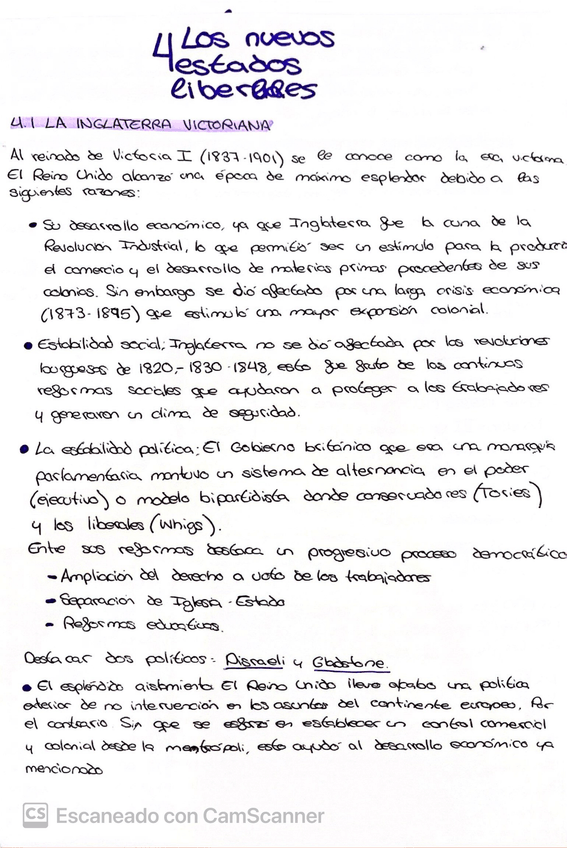 4 Los nuevos
estados
liberales
4.1 LA INGLATERRA VICTORIANA
Al reinado de Victoria I (1837-1901) se le conoce como la era victoriana
El Reino Unido alcanzó una época de máximo esplendor debido a las
siguientes razones:
• Su desarrollo económico, ya que Inglaterra fue la cuna de la
Revolución Industrial, lo que permitió ser un estímulo para la
el comercio y el desarrollo de materias primas procedentes de sus
colonias. Sin embargo se dió afectado por una larga crisis económica
(1873-1895) que estimuló una mayor expansión colonial.
• Estabilidad social; Inglaterra no se dió afectada por las revoluciones
burguesas de 1820,-1830-1848, esto fue fruto de las continuas
reformas sociales que ayudaron a proteger a los trabajadores
y generaron un clima de seguridad.
• La estabilidad política; El Gobierno británico que era una monarquía
parlamentaria mantuvo un sistema de alternancia en el poder
(ejecutivo) o modelo bipartidista donde conservadores (Tories)
y los liberales (Whigs).
Ente sus reformas destaca un progresivo proceso democrático
- Ampliación del derecho a voto de los trabajadores
- Separación de Iglesia-Estado
- Reformas educativas.
Destacar dos políticos: Disraeli y Gladstone.
• El espléndido aislamiento El Reino Unido lleve acabo una política
exterior de no intervención en los asuntos del continente europeo. Por
el contrario Sin que se esforzó en establecer un control comercial
y colonial desde la metrópoli, esto ayudó al desarrollo económico ya
mencionado
CS Escaneado con CamScanner